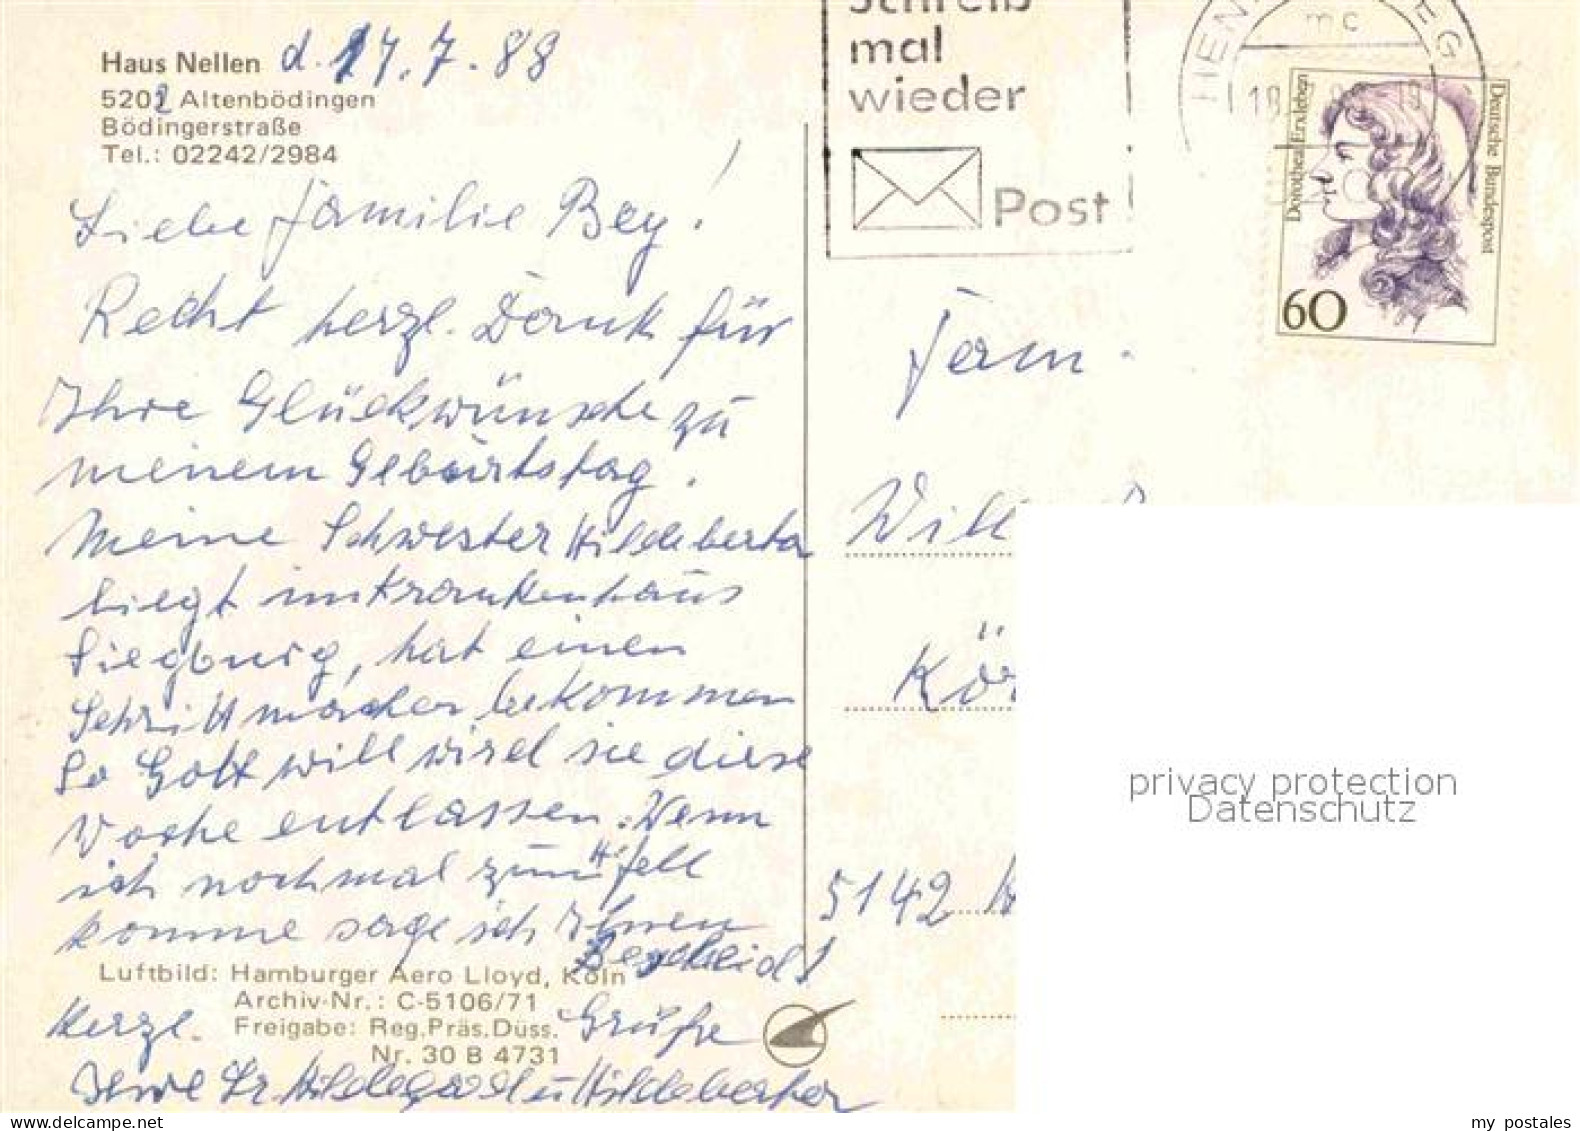 Haus Nellen d. 17.7.88
5202 Altenbödingen
Bödingerstraße
Tel.: 02242/2984
Liebe Familie Bey!
Recht herzl. Dank für
Ihre Glückwünsche zu
meinem Geburtstag.
Meine Schwester Hildeberta
liegt im Krankenhaus
Siegburg, hat einen
Schrittmacher bekommen
So Gott will wird sie diese
Woche entlassen. Wenn
ich nochmal zum
komme sage ich Ihnen
Bescheid!
Luftbild: Hamburger Aero Lloyd, Köln
Archiv-Nr.: C-5106/71
Freigabe: Reg.Präs.Düss.
Nr. 30 B 4731
Herzl. Grüße
Ihre Sr. Hildegard u Hildeberta
Schreib
mal
wieder
Post
mc
Dorothea Erxleben
Deutsche Bundespost
60
Fam.
Will
Kör
5142
privacy protection
Datenschutz
delcampe.net
my_postales